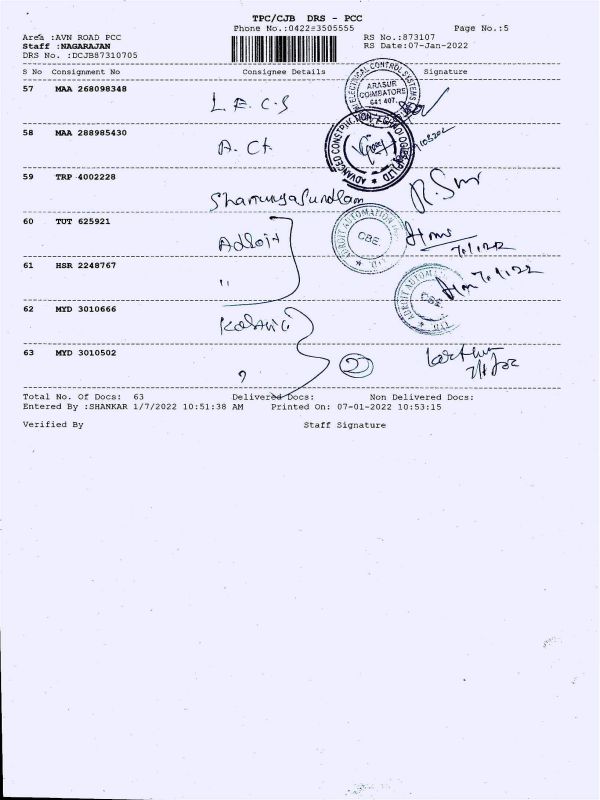 TPC/CJB DRS - PCC
Phone No.:0422-3505555 Page No.:5
Area :AVN ROAD PCC RS No.:873107
Staff :NAGARAJAN RS Date:07-Jan-2022
DRS No. :DCJB87310705
S No Consignment No Consignee Details Signature
57 MAA 268098348
L.E.C.S
ELECTRICAL CONTROL SYSTEMS
ARASUR
COIMBATORE
641 407.
58 MAA 288985430
A. Ct
ADVANCED CONSTRUCTION
59 TRP 4002228
Shanmugasundaram
60 TUT 625921
Adroit
ADROIT AUTOMATION
CBE.
7/1/22
61 HSR 2248767
"
ADROIT AUTOM
CBE.
7.1.22
62 MYD 3010666
63 MYD 3010502
2
Total No. Of Docs: 63 Delivered Docs: Non Delivered Docs:
Entered By :SHANKAR 1/7/2022 10:51:38 AM Printed On: 07-01-2022 10:53:15
Verified By Staff Signature